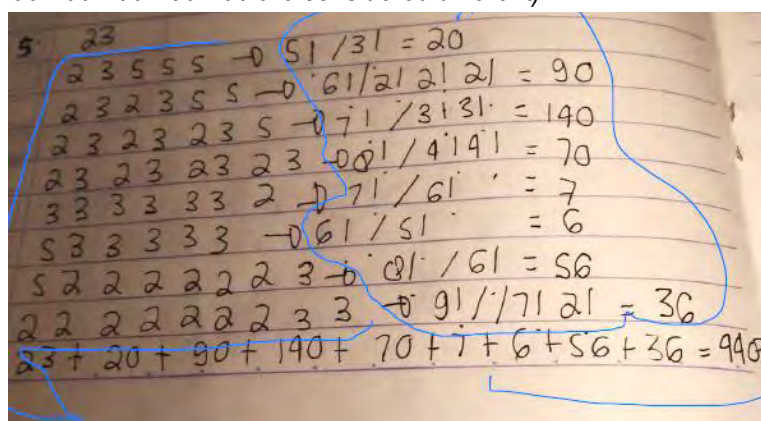 5 23
2 3 5 5 5 → 5! / 3! = 20
2 3 2 3 5 5 → 6! / 2! 2! 2! = 90
2 3 2 3 2 3 5 → 7! / 3! 3! = 140
23 23 23 23 → 8! / 4! 4! = 70
3 3 3 3 3 3 2 → 7! / 6! = 7
5 3 3 3 3 3 → 6! / 5! = 6
5 2 2 2 2 2 2 3 → 8! / 6! = 56
2 2 2 2 2 2 2 3 3 → 9! / 7! 2! = 36
23 + 20 + 90 + 140 + 70 + 7 + 6 + 56 + 36 = 440